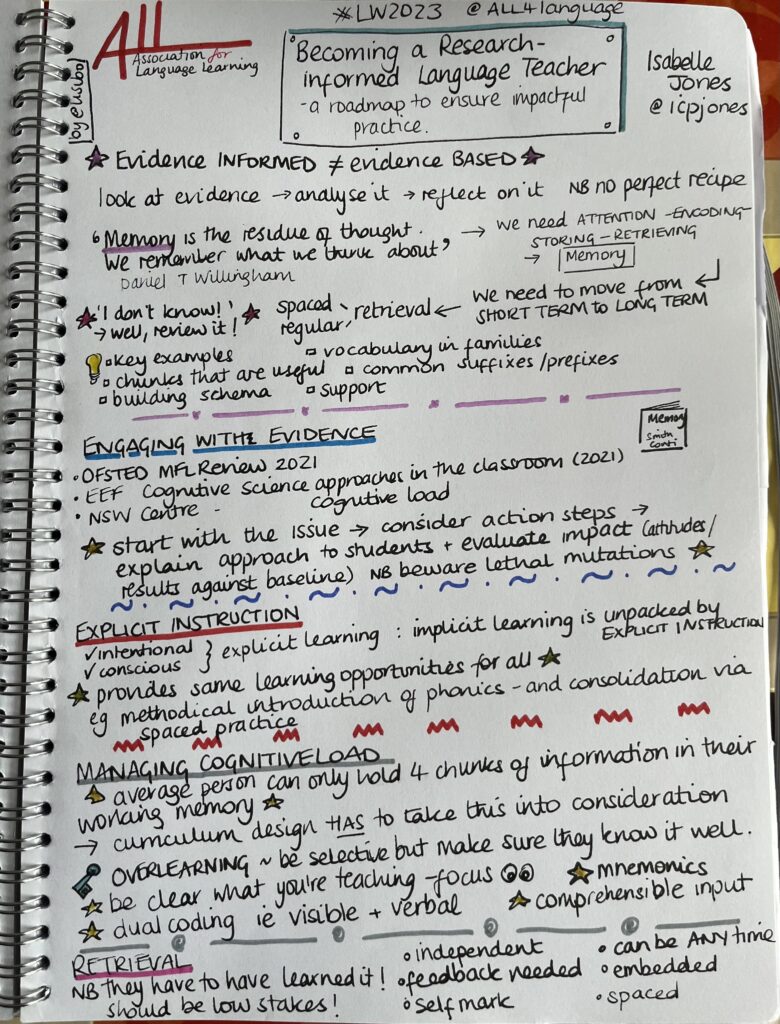 #LW2023 @ALL4language
All
Association for
Language Learning
by @lisibo
Becoming a Research-
informed Language Teacher
- a roadmap to ensure impactful
practice.
Isabelle
Jones
@icpjones
Evidence INFORMED ≠ evidence BASED
look at evidence → analyse it → reflect on it NB no perfect recipe
'Memory is the residue of thought.
We remember what we think about'
Daniel T Willingham
→ we need ATTENTION - ENCODING -
STORING - RETRIEVING
→ Memory
'I don't know!'
→ well, review it!
spaced
regular
retrieval ← We need to move from
SHORT TERM to LONG TERM
key examples
vocabulary in families
chunks that are useful
common suffixes/prefixes
building schema
support
ENGAGING WITH EVIDENCE
Memory
Smith
Conti
• OFSTED MFL Review 2021
• EEF Cognitive Science approaches in the classroom (2021)
• NSW Centre - Cognitive load
start with the issue → consider action steps →
explain approach to students + evaluate impact (attitudes/
results against baseline) NB beware lethal mutations
EXPLICIT INSTRUCTION
✓intentional
✓conscious
} explicit learning : implicit learning is unpacked by
EXPLICIT INSTRUCTION
provides same learning opportunities for all
eg methodical introduction of phonics - and consolidation via
spaced practice
MANAGING COGNITIVE LOAD
average person can only hold 4 chunks of information in their
working memory
→ curriculum design HAS to take this into consideration
OVERLEARNING ~ be selective but make sure they know it well.
be clear what you're teaching - focus
mnemonics
dual coding ie visible + verbal
comprehensible input
RETRIEVAL
NB they have to have learned it!
should be low stakes!
independent
feedback needed
self mark
can be ANY time
embedded
spaced